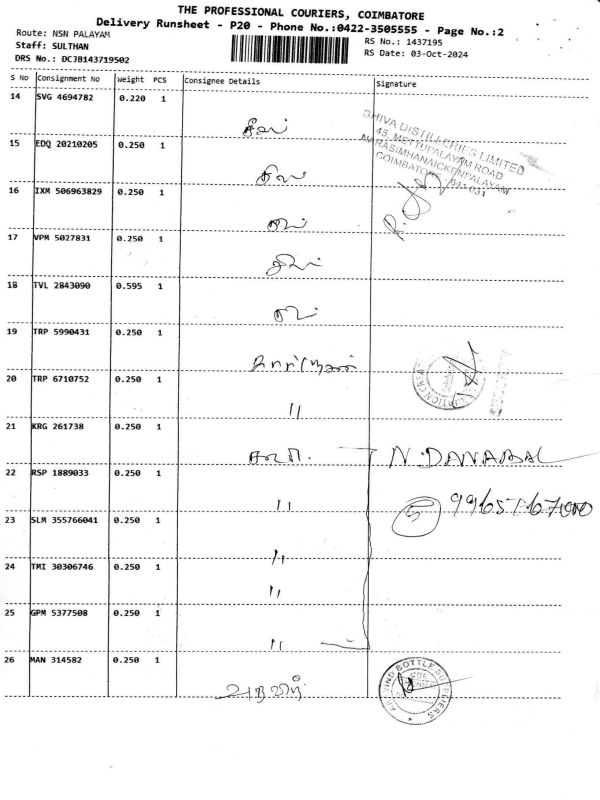 THE PROFESSIONAL COURIERS, COIMBATORE
Delivery Runsheet - P20 - Phone No.:0422-3505555 - Page No.:2
Route: NSN PALAYAM
RS No.: 1437195
Staff: SULTHAN
RS Date: 03-Oct-2024
DRS No.: DCJB143719502
S No Consignment No Weight PCS Consignee Details Signature
14 SVG 4694782 0.220 1
SHIVA DISTILLERIES LIMITED
45, METTUPALAYAM ROAD
NARASIMHANAICKENPALAYAM
COIMBATORE 641 031
15 EDQ 20210205 0.250 1
16 IXM 506963829 0.250 1
17 VPM 5027831 0.250 1
18 TVL 2843090 0.595 1
19 TRP 5990431 0.250 1
20 TRP 6710752 0.250 1 "
21 KRG 261738 0.250 1
N. DANABAL
22 RSP 1889033 0.250 1 "
5
23 SLM 355766041 0.250 1 "
24 TMI 30306746 0.250 1 "
25 GPM 5377508 0.250 1 "
26 MAN 314582 0.250 1
ARVIND BOTTLE SUPPLIERS